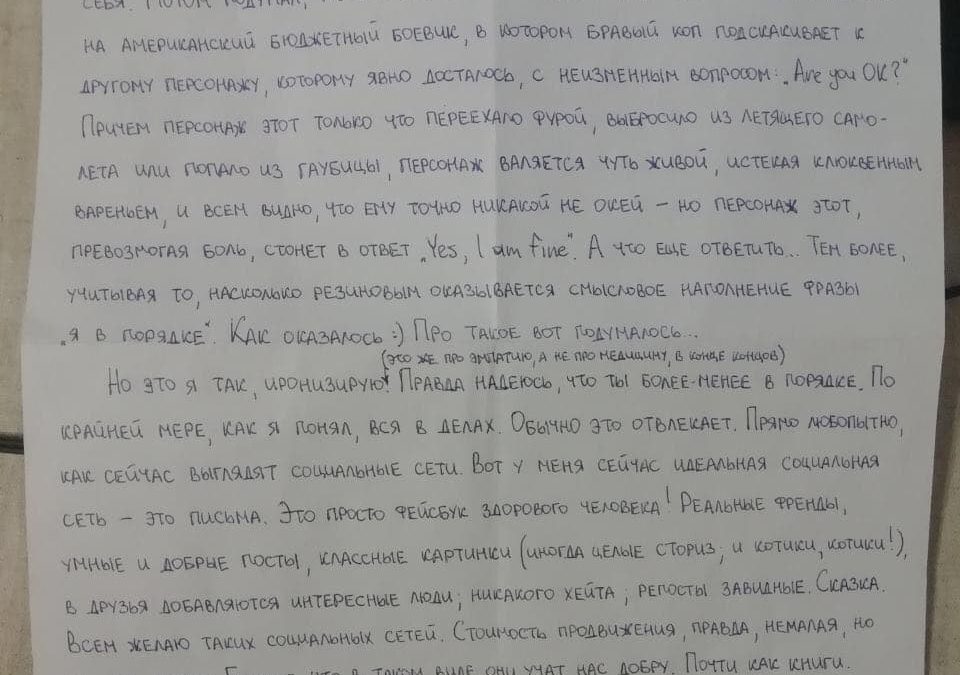 СЕБЯ. ПОТОМ ПОДУМАЛ,
НА АМЕРИКАНСКИЙ БЮДЖЕТНЫЙ БОЕВИК, В КОТОРОМ БРАВЫЙ КОП ПОДСКАКИВАЕТ К
ДРУГОМУ ПЕРСОНАЖУ, КОТОРОМУ ЯВНО ДОСТАЛОСЬ, С НЕИЗМЕННЫМ ВОПРОСОМ: „Are you OK?"
ПРИЧЕМ ПЕРСОНАЖ ЭТОТ ТОЛЬКО ЧТО ПЕРЕЕХАЛО ФУРОЙ, ВЫБРОСИЛО ИЗ ЛЕТЯЩЕГО САМО-
ЛЕТА ИЛИ ПОПАЛО ИЗ ГАУБИЦЫ, ПЕРСОНАЖ ВАЛЯЕТСЯ ЧУТЬ ЖИВОЙ, ИСТЕКАЯ КЛЮКВЕННЫМ
ВАРЕНЬЕМ, И ВСЕМ ВИДНО, ЧТО ЕМУ ТОЧНО НИКАКОЙ НЕ ОКЕЙ – НО ПЕРСОНАЖ ЭТОТ,
ПРЕВОЗМОГАЯ БОЛЬ, СТОНЕТ В ОТВЕТ „Yes, I am fine". А ЧТО ЕЩЕ ОТВЕТИТЬ... ТЕМ БОЛЕЕ,
УЧИТЫВАЯ ТО, НАСКОЛЬКО РЕЗИНОВЫМ ОКАЗЫВАЕТСЯ СМЫСЛОВОЕ НАПОЛНЕНИЕ ФРАЗЫ
„Я В ПОРЯДКЕ". КАК ОКАЗАЛОСЬ :) ПРО ТАКОЕ ВОТ ПОДУМАЛОСЬ...
(ЭТО ЖЕ ПРО ЭМПАТИЮ, А НЕ ПРО МЕДИЦИНУ, В КОНЦЕ КОНЦОВ)
НО ЭТО Я ТАК, ИРОНИЗИРУЮ! ПРАВДА НАДЕЮСЬ, ЧТО ТЫ БОЛЕЕ-МЕНЕЕ В ПОРЯДКЕ. ПО
КРАЙНЕЙ МЕРЕ, КАК Я ПОНЯЛ, ВСЯ В ДЕЛАХ. ОБЫЧНО ЭТО ОТВЛЕКАЕТ. ПРЯМО ЛЮБОПЫТНО,
КАК СЕЙЧАС ВЫГЛЯДЯТ СОЦИАЛЬНЫЕ СЕТИ. ВОТ У МЕНЯ СЕЙЧАС ИДЕАЛЬНАЯ СОЦИАЛЬНАЯ
СЕТЬ – ЭТО ПИСЬМА. ЭТО ПРОСТО ФЕЙСБУК ЗДОРОВОГО ЧЕЛОВЕКА! РЕАЛЬНЫЕ ФРЕНДЫ,
УМНЫЕ И ДОБРЫЕ ПОСТЫ, КЛАССНЫЕ КАРТИНКИ (ИНОГДА ЦЕЛЫЕ СТОРИЗ; И КОТИКИ, КОТИКИ!),
В ДРУЗЬЯ ДОБАВЛЯЮТСЯ ИНТЕРЕСНЫЕ ЛЮДИ; НИКАКОГО ХЕЙТА; РЕПОСТЫ ЗАВИДНЫЕ. СКАЗКА.
ВСЕМ ЖЕЛАЮ ТАКИХ СОЦИАЛЬНЫХ СЕТЕЙ. СТОИМОСТЬ ПРОДВИЖЕНИЯ, ПРАВДА, НЕМАЛАЯ, НО
В ТАКОМ ВИДЕ ОНИ УЧАТ НАС ДОБРУ. ПОЧТИ КАК КНИГИ.